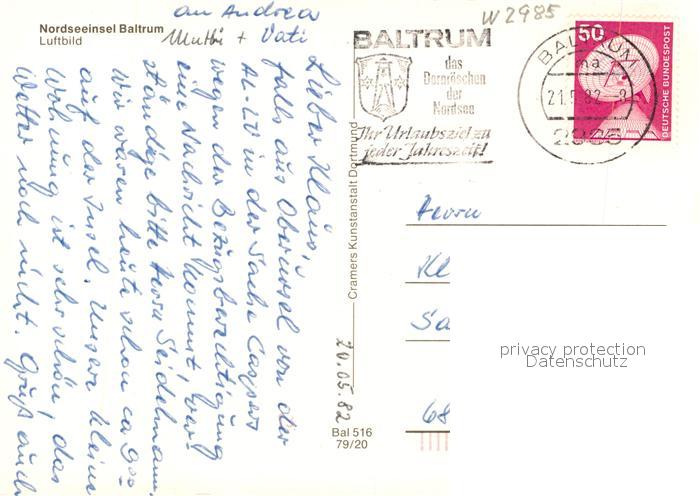 Nordseeinsel Baltrum
Luftbild
an Andrea
Mutti + Vati
W 2985
Lieber Klaus,
falls aus Oberursel von der
AL-20 in der Sache Caspers
wegen der Bezugsberechtigung
eine Nachricht kommt, ver-
ständige bitte Herrn Seidelmann.
Wir waren heute schon ca 9⁰⁰
auf der Insel. Unsere kleine
Wohnung ist sehr schön, das
Wetter noch nicht. Gruß auch
20.05.82
Cramers Kunstanstalt Dortmund
Bal 516
79/20
BALTRUM
das
Dornröschen
der
Nordsee
Ihr Urlaubsziel zu
jeder Jahreszeit!
BALTRUM
ma
21.5.82-8
2985
50
DEUTSCHE BUNDESPOST
Herrn
Kl
Sa
68
privacy protection
Datenschutz